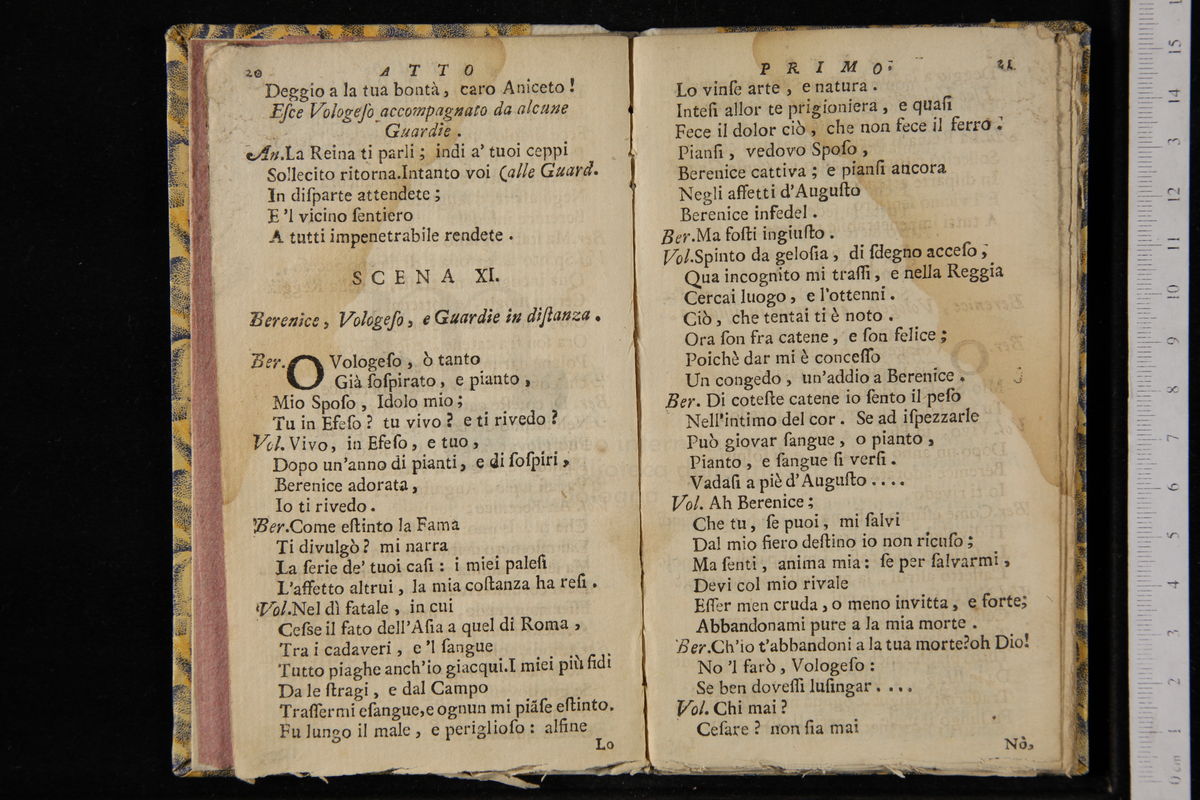 20 ATTO
Deggio a la tua bontà, caro Aniceto!
Eſce Vologeſo accompagnato da alcune
Guardie.
An.La Reina ti parli; indi a' tuoi ceppi
Sollecito ritorna.Intanto voi (alle Guard.
In diſparte attendete;
E 'l vicino ſentiero
A tutti impenetrabile rendete.
SCENA XI.
Berenice, Vologeſo, e Guardie in diſtanza.
Ber. O Vologeſo, ò tanto
Già ſoſpirato, e pianto,
Mio Spoſo, Idolo mio;
Tu in Efeſo? tu vivo? e ti rivedo?
Vol. Vivo, in Efeſo, e tuo,
Dopo un'anno di pianti, e di ſoſpiri,
Berenice adorata,
Io ti rivedo.
Ber.Come eſtinto la Fama
Ti divulgò? mi narra
La ſerie de' tuoi caſi: i miei paleſi
L'affetto altrui, la mia coſtanza ha reſi.
Vol.Nel dì fatale, in cui
Ceſse il fato dell'Aſia a quel di Roma,
Tra i cadaveri, e 'l ſangue
Tutto piaghe anch'io giacqui.I miei più fidi
Da le ſtragi, e dal Campo
Traſſermi eſangue,e ognun mi piãſe eſtinto.
Fu lungo il male, e periglioſo: alfine
Lo
PRIMO. 21
Lo vinſe arte, e natura.
Inteſi allor te prigioniera, e quaſi
Fece il dolor ciò, che non fece il ferro.
Pianſi, vedovo Spoſo,
Berenice cattiva; e pianſi ancora
Negli affetti d'Auguſto
Berenice infedel.
Ber.Ma foſti ingiuſto.
Vol.Spinto da geloſia, di ſdegno acceſo,
Qua incognito mi traſſi, e nella Reggia
Cercai luogo, e l'ottenni.
Ciò, che tentai ti è noto.
Ora ſon fra catene, e ſon felice;
Poichè dar mi è conceſſo
Un congedo, un'addio a Berenice.
Ber. Di coteſte catene io ſento il peſo
Nell'intimo del cor. Se ad iſpezzarle
Può giovar ſangue, o pianto,
Pianto, e ſangue ſi verſi.
Vadaſi a piè d'Auguſto....
Vol. Ah Berenice;
Che tu, ſe puoi, mi ſalvi
Dal mio fiero deſtino io non ricuſo;
Ma ſenti, anima mia: ſe per ſalvarmi,
Devi col mio rivale
Eſſer men cruda, o meno invitta, e forte;
Abbandonami pure a la mia morte.
Ber.Ch'io t'abbandoni a la tua morte?oh Dio!
No 'l farò, Vologeſo:
Se ben doveſſi luſingar....
Vol. Chi mai?
Ceſare? non ſia mai
Nò,